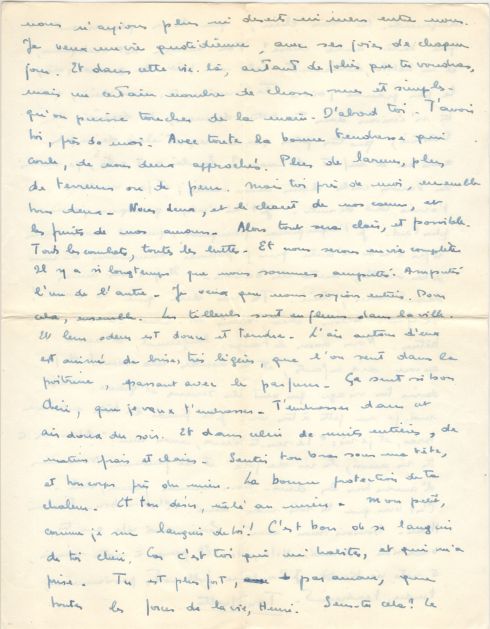 nous n'ayions plus ni deserts ni mers entre nous.
Je veux une vie quotidienne, avec ses joies de chaque
jour. Et dans cette vie-là, autant de folies que tu voudras,
mais un certain nombre de choses nues et simples
qu'on puisse toucher de la main. D'abord toi. T'avoir
toi, près de moi. Avec toute la bonne tendresse qui
coule, de nous deux approchés. Plus de larmes, plus
de terreurs ou de peur. Mais toi près de moi, ensemble
tous deux. Nous deux, et le chaud de nos cœurs, et
les fruits de nos amours. Alors tout sera clair, et possible.
Tous les combats, toutes les luttes. Et nous serons en vie complète
Il y a si longtemps que nous sommes amputés. Amputés
l'un de l'autre. Je veux que nous soyions entiers. Pour
cela, ensemble. Les tilleuls sont en fleurs dans la ville.
Et leur odeur est douce et tendre. L'air autour d'eux
est animé de brises très légères, que l'on sent dans la
poitrine, passant avec le parfum. Ça sent si bon
Chéri, que je veux t'embrasser. T'embrasser dans cet
air doux du soir. Et dans celui de nuits entières, de
matins frais et clairs. Sentir ton bras sous ma tête,
et ton corps près du mien. La bonne protection de ta
chaleur. Et ton désir, mêlé au mien. Mon petit,
comme je me languis de toi! C'est bon de se languir
de toi chéri. Car c'est toi qui m'habites, et qui m'a
prise. Tu est plus fort, par amour, que
toutes les forces de la vie, Henri. Sens-tu cela? Le